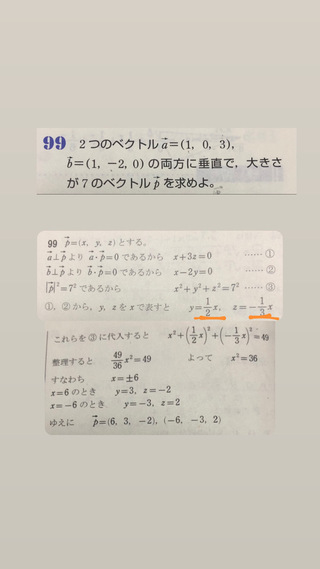 99 2つのベクトル a→=(1, 0, 3),
b→=(1, −2, 0) の両方に垂直で，大きさ
が7のベクトル p→ を求めよ。
99 p→=(x, y, z) とする。
a→⊥p→ より a→・p→=0 であるから x+3z=0 ……①
b→⊥p→ より b→・p→=0 であるから x−2y=0 ……②
|p→|²=7² であるから x²+y²+z²=7² ……③
①，②から，y，z を x で表すと y=1/2x, z=−1/3x
これらを③に代入すると x²+(1/2x)²+(−1/3x)²=49
整理すると 49/36x²=49 よって x²=36
すなわち x=±6
x=6 のとき y=3, z=−2
x=−6 のとき y=−3, z=2
ゆえに p→=(6, 3, −2), (−6, −3, 2)